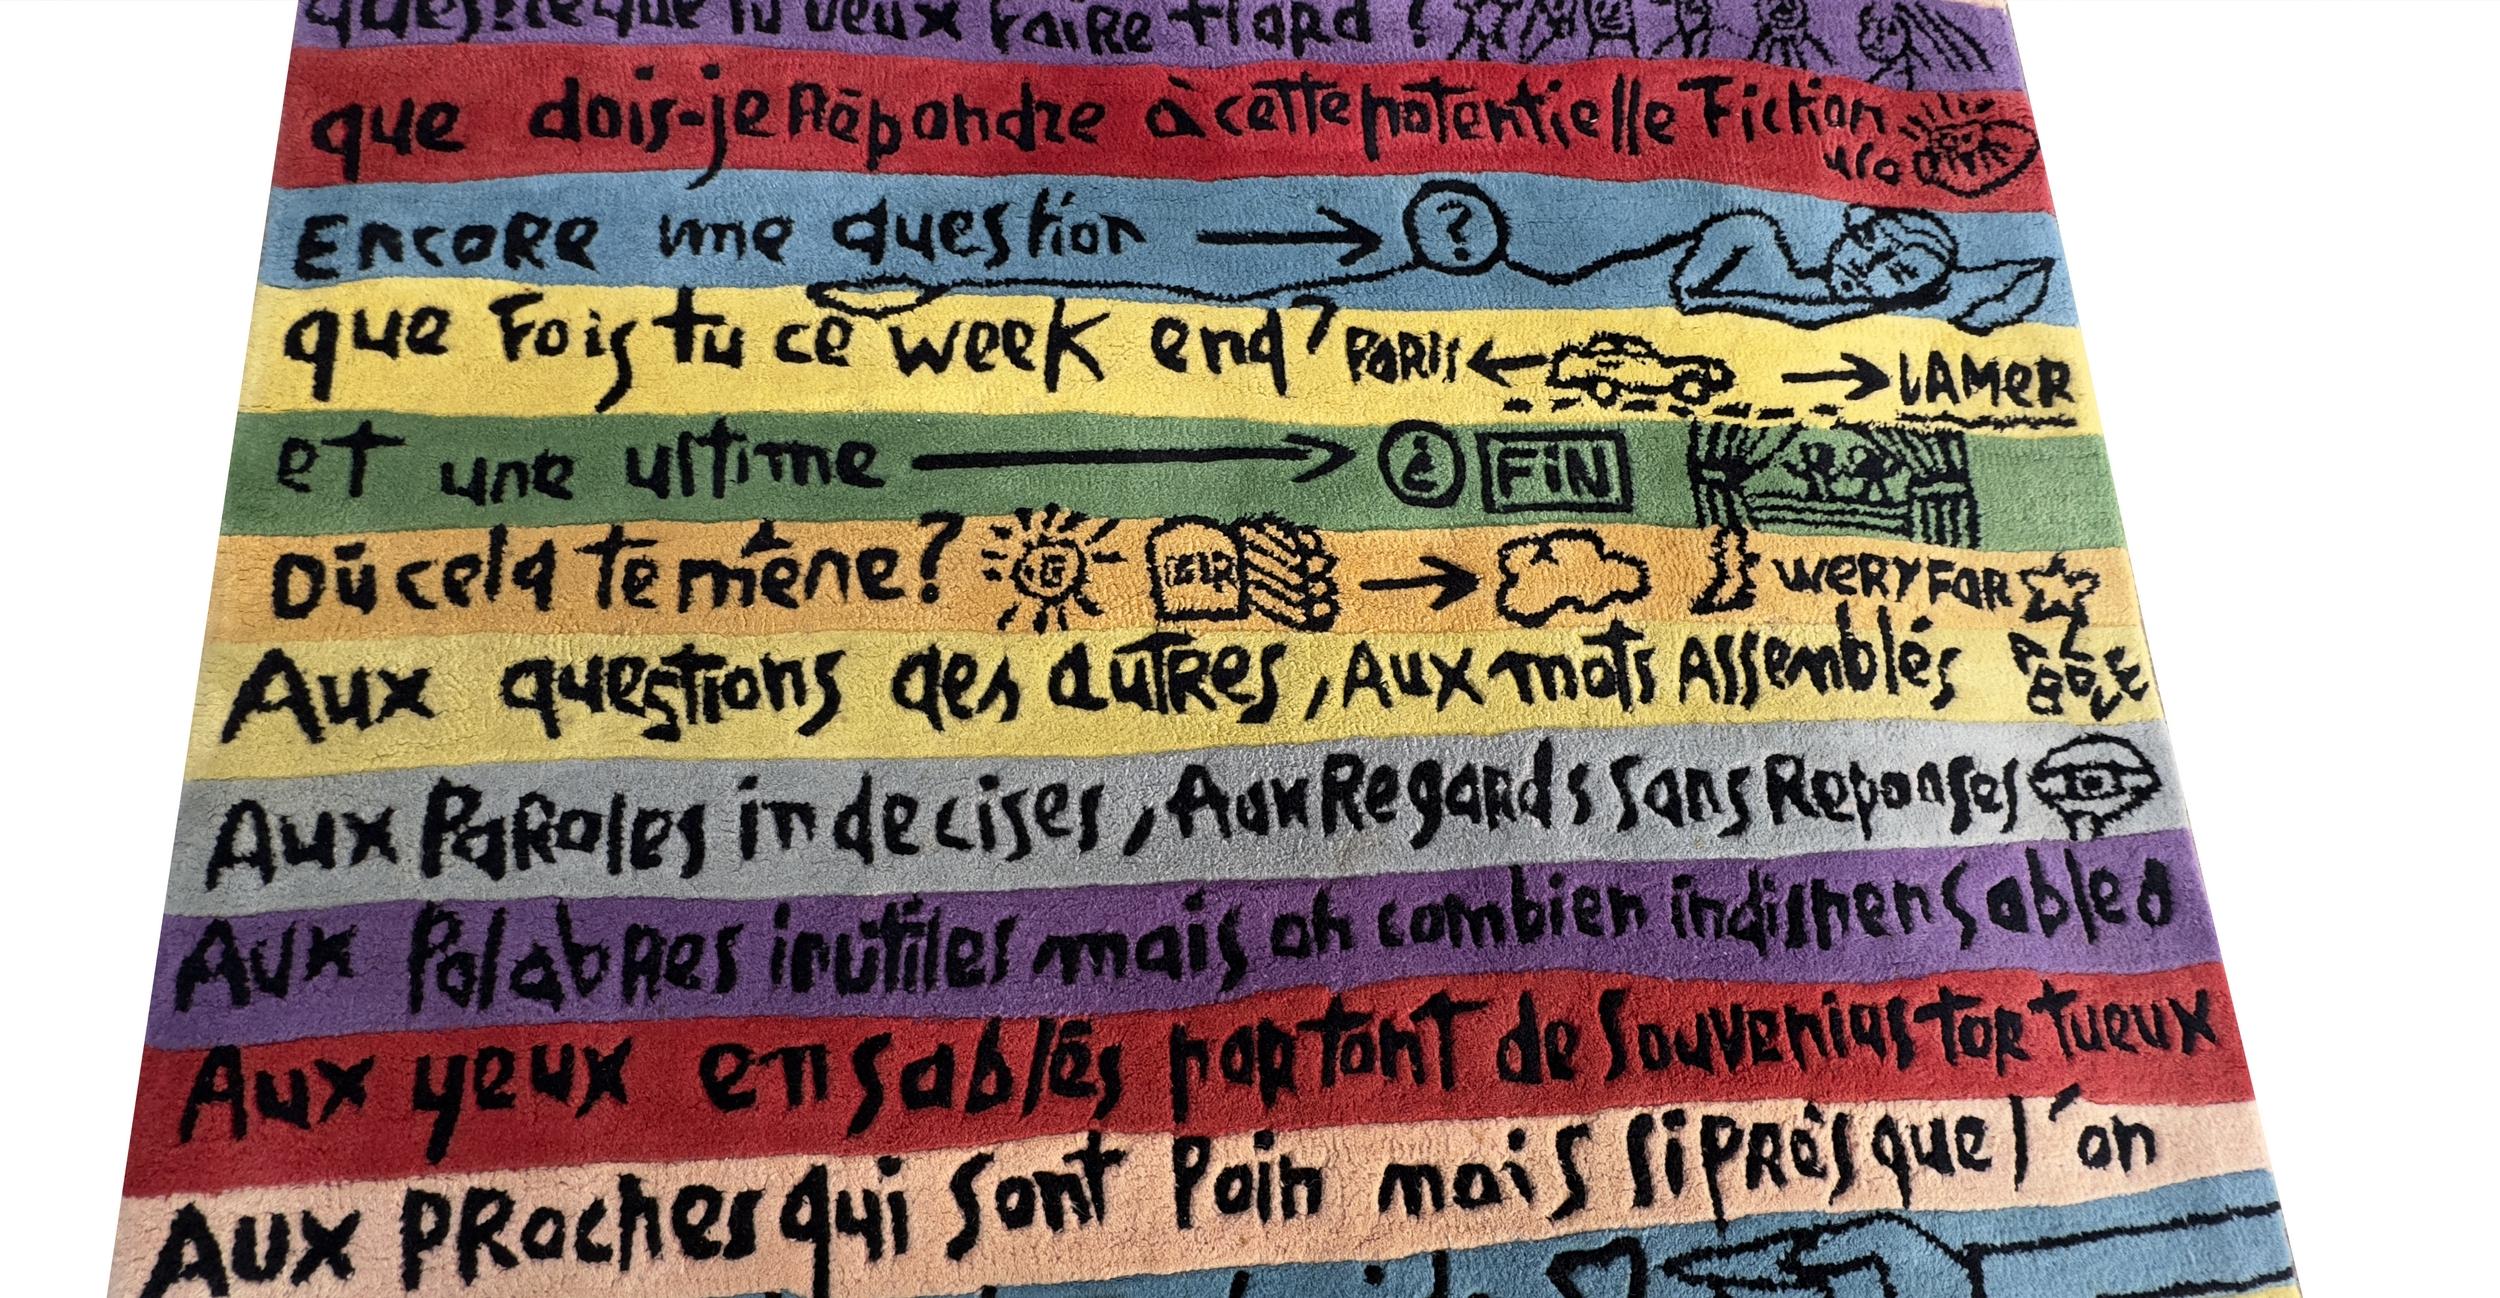 que tu veux FaiRe + tard ?
que dois-je Répondre à cette potentielle Fiction
EncoRe une question → ?
que Fais tu ce week end? PARIS ← → LAMER
et une ultime → ¿ FiN
Où cela te mène? → WERY FAR
Aux questions des autRes, Aux mots Assemblés ABOVE
Aux PaRoles indecises, Aux Regards sans Reponses
Aux PalabRes inutiles mais oh combien indispensables
Aux yeux ensablés partant de Souvenirs tortueux
Aux PRoches qui sont Poin mais si PRès que l'on